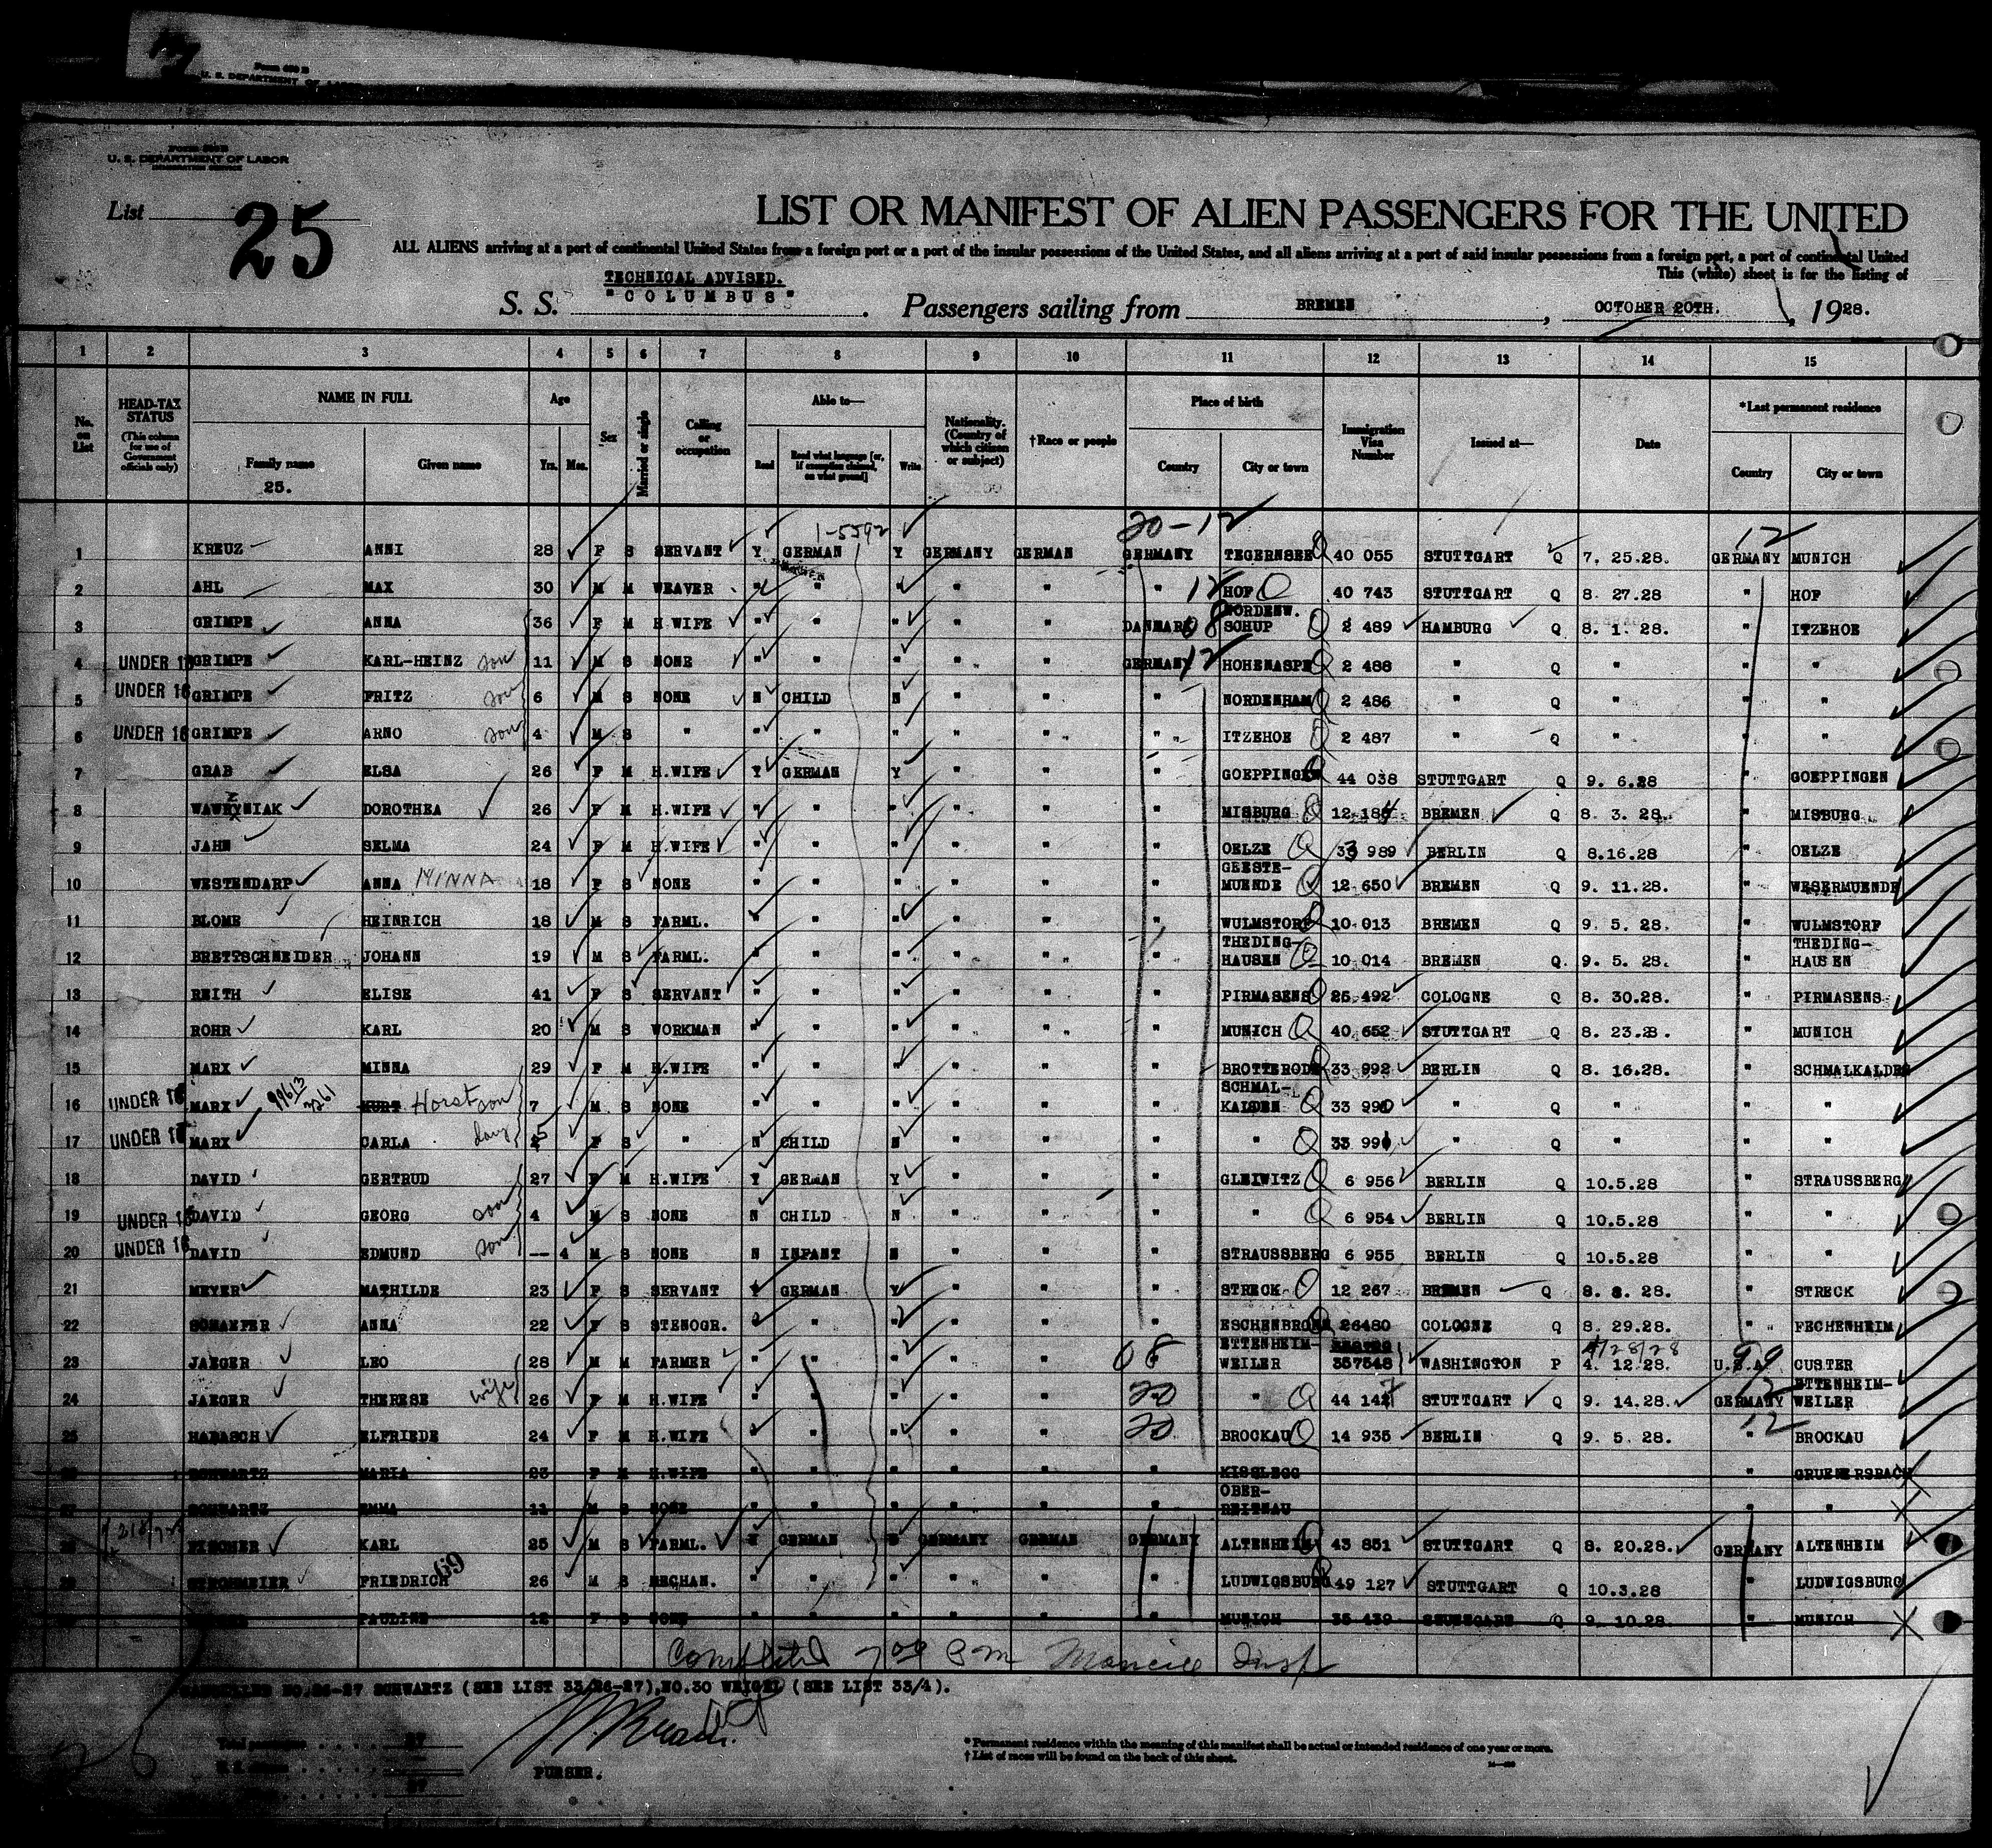 Form 500 B
U. S. DEPARTMENT OF LABOR
U. S. DEPARTMENT OF LABOR
IMMIGRATION SERVICE
List 25
LIST OR MANIFEST OF ALIEN PASSENGERS FOR THE UNITED
ALL ALIENS arriving at a port of continental United States from a foreign port or a port of the insular possessions of the United States, and all aliens arriving at a port of said insular possessions from a foreign port, a port of continental United
This (white) sheet is for the listing of
TECHNICAL ADVISED.
S. S. "COLUMBUS". Passengers sailing from BREMEN, OCTOBER 20TH., 1928.
1 2 3 4 5 6 7 8 9 10 11 12 13 14 15
No. on List
HEAD-TAX STATUS (This column for use of Government officials only)
NAME IN FULL Family name Given name
25.
Age Yrs. Mos.
Sex
Married or single
Calling or occupation
Able to— Read Read what language [or, if exemption claimed, on what ground] Write
Nationality. (Country of which citizen or subject)
†Race or people
Place of birth Country City or town
Immigration Visa Number
Issued at—
Date
*Last permanent residence Country City or town
1-5592 20-12 12
1 KREUZ ANNI 28 F S SERVANT Y GERMAN Y GERMANY GERMAN GERMANY TEGERNSEE 40 055 STUTTGART Q 7. 25.28. GERMANY MUNICH
2 AHL MAX 30 M M WEAVER " " " " " " 12 HOF 40 743 STUTTGART Q 8. 27.28 " HOF
3 GRIMPE ANNA 36 F M H.WIFE " " " " " DANMARK 08 NORDENW. SCHUP 2 489 HAMBURG Q 8. 1. 28. " ITZEHOE
4 UNDER 16 GRIMPE KARL-HEINZ son 11 M S NONE " " " " " GERMANY 12 HOHENASPE 2 488 " Q " " "
5 UNDER 16 GRIMPE FRITZ son 6 M S NONE N CHILD N " " " NORDENHAM 2 486 " Q " " "
6 UNDER 16 GRIMPE ARNO son 4 M S " " " " " " " ITZEHOE 2 487 " Q " " "
7 GRAB ELSA 26 F M H.WIFE Y GERMAN Y " " " GOEPPINGEN 44 038 STUTTGART Q 9. 6.28 " GOEPPINGEN
8 WAWRYNIAK DOROTHEA 26 F M H.WIFE " " " " " " MISBURG 12 184 BREMEN Q 8. 3. 28. " MISBURG
9 JAHN SELMA 24 F M H.WIFE " " " " " " OELZE 33 989 BERLIN Q 8.16.28 " OELZE
10 WESTENDARP ANNA MINNA 18 F S NONE " " " " " " GEESTE-MUENDE 12 650 BREMEN Q 9. 11.28. " WESERMUENDE
11 BLOME HEINRICH 18 M S FARML. " " " " " " WULMSTORF 10 013 BREMEN Q 9. 5. 28. " WULMSTORF
12 BRETTSCHNEIDER JOHANN 19 M S FARML. " " " " " " THEDING-HAUSEN 10 014 BREMEN Q. 9. 5. 28. " THEDING-HAUSEN
13 REITH ELISE 41 F S SERVANT " " " " " " PIRMASENS 25 492 COLOGNE Q 8. 30.28. " PIRMASENS
14 ROHR KARL 20 M S WORKMAN " " " " " " MUNICH 40 652 STUTTGART Q 8. 23.28. " MUNICH
15 MARX MINNA 29 F M H.WIFE " " " " " " BROTTERODE 33 992 BERLIN Q 8. 16.28. " SCHMALKALDEN
16 UNDER 16 MARX KURT Horst son 7 M S NONE " " " " " " SCHMAL-KALDEN 33 990 " Q " " "
17 UNDER 16 MARX CARLA 5 F S " N CHILD N " " " " 33 991 " Q " " "
18 DAVID GERTRUD 27 F M H.WIFE Y GERMAN Y " " " GLEIWITZ 6 956 BERLIN Q 10.5.28 " STRAUSSBERG
19 UNDER 16 DAVID GEORG son 4 M S NONE N CHILD N " " " " 6 954 BERLIN Q 10.5.28 " "
20 UNDER 16 DAVID EDMUND son -- 4 M S NONE N INFANT N " " " STRAUSSBERG 6 955 BERLIN Q 10.5.28 " "
21 MEYER MATHILDE 23 F S SERVANT Y GERMAN Y " " " STRECK 12 267 BREMEN Q 8. 8. 28. " STRECK
22 SCHAEFER ANNA 22 F S STENOGR. " " " " " " 26480 COLOGNE Q 8. 29.28. " FECHENHEIM
23 JAEGER LEO 28 M M FARMER " " " " " 08 " ETTENHEIM-WEILER 357548 WASHINGTON P 4/28/28 4. 12.28. U.S.A. 99 CUSTER
24 JAEGER THERESE wife 26 F M H.WIFE " " " " " 20 " 44 147 STUTTGART Q 9. 14.28. GERMANY 12 ETTENHEIM-WEILER
25 HABASCH ELFRIEDE 24 F M H.WIFE " " " " " 20 BROCKAU 14 935 BERLIN Q 9. 5. 28. 12 BROCKAU
26 SCHWARTZ MARIA 23 F M H.WIFE " " " " " " KISSLEGG " GRUENERSBACH
27 SCHWARTZ EMMA 11 M S NONE " " " " " " OBER-REITNAU " "
28 FISCHER KARL 25 M S FARML. Y GERMAN Y GERMANY GERMAN GERMANY ALTENHEIM 43 851 STUTTGART Q 8. 20.28. GERMANY ALTENHEIM
29 STROHMEIER FRIEDRICH 26 M S MECHAN. " " " " " " LUDWIGSBURG 49 127 STUTTGART Q 10.3.28 " LUDWIGSBURG
30 PAULINE 12 F S NONE " " " " " " MUNICH 35 439 STUTTGART Q 9. 10.28. " MUNICH
Completed 7 00 P m Insp
CANCELLED NO.26-27 SCHWARTZ (SEE LIST 33/26-27),NO.30 WEIGEL (SEE LIST 33/4).
Total passengers 27
U. S. citizens
27
PURSER.
* Permanent residence within the meaning of this manifest shall be actual or intended residence of one year or more.
† List of races will be found on the back of this sheet.